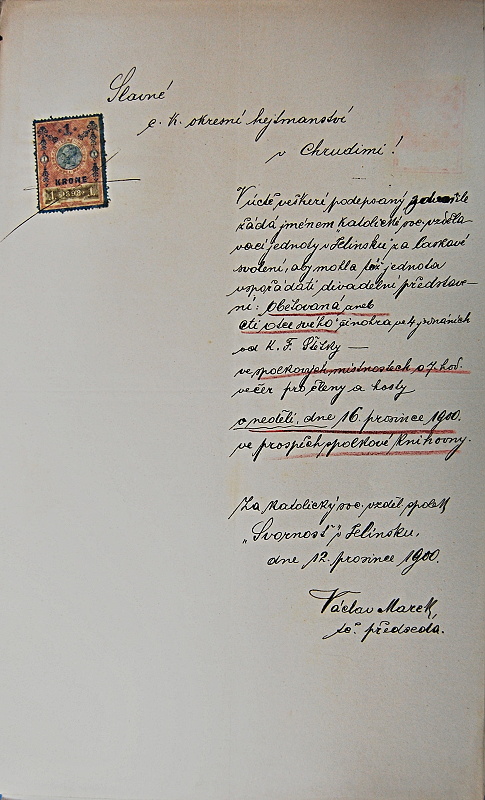 Slavné
c. k. okresní hejtmanství
v Chrudimi!
1
KRONE
1898
V úctě veškeré podepsaný
žádá jménem katolické soc. vzdělá-
vací jednoty v Hlinsku za laskavé
svolení, aby mohla též jednota
uspořádati divadelní představe-
ní: Obětovaná aneb
cti otce svého činohra ve 4 jednáních
od K. F. Přítky —
ve spolkových místnostech o 7. hod.
večer pro členy a hosty
v neděli, dne 16. prosince 1900.
ve prospěch spolkové knihovny.
Za katolický soc. vzděl. spolek
„Svornost" v Hlinsku,
dne 12. prosince 1900.
Václav Marek,
t. č. předseda.